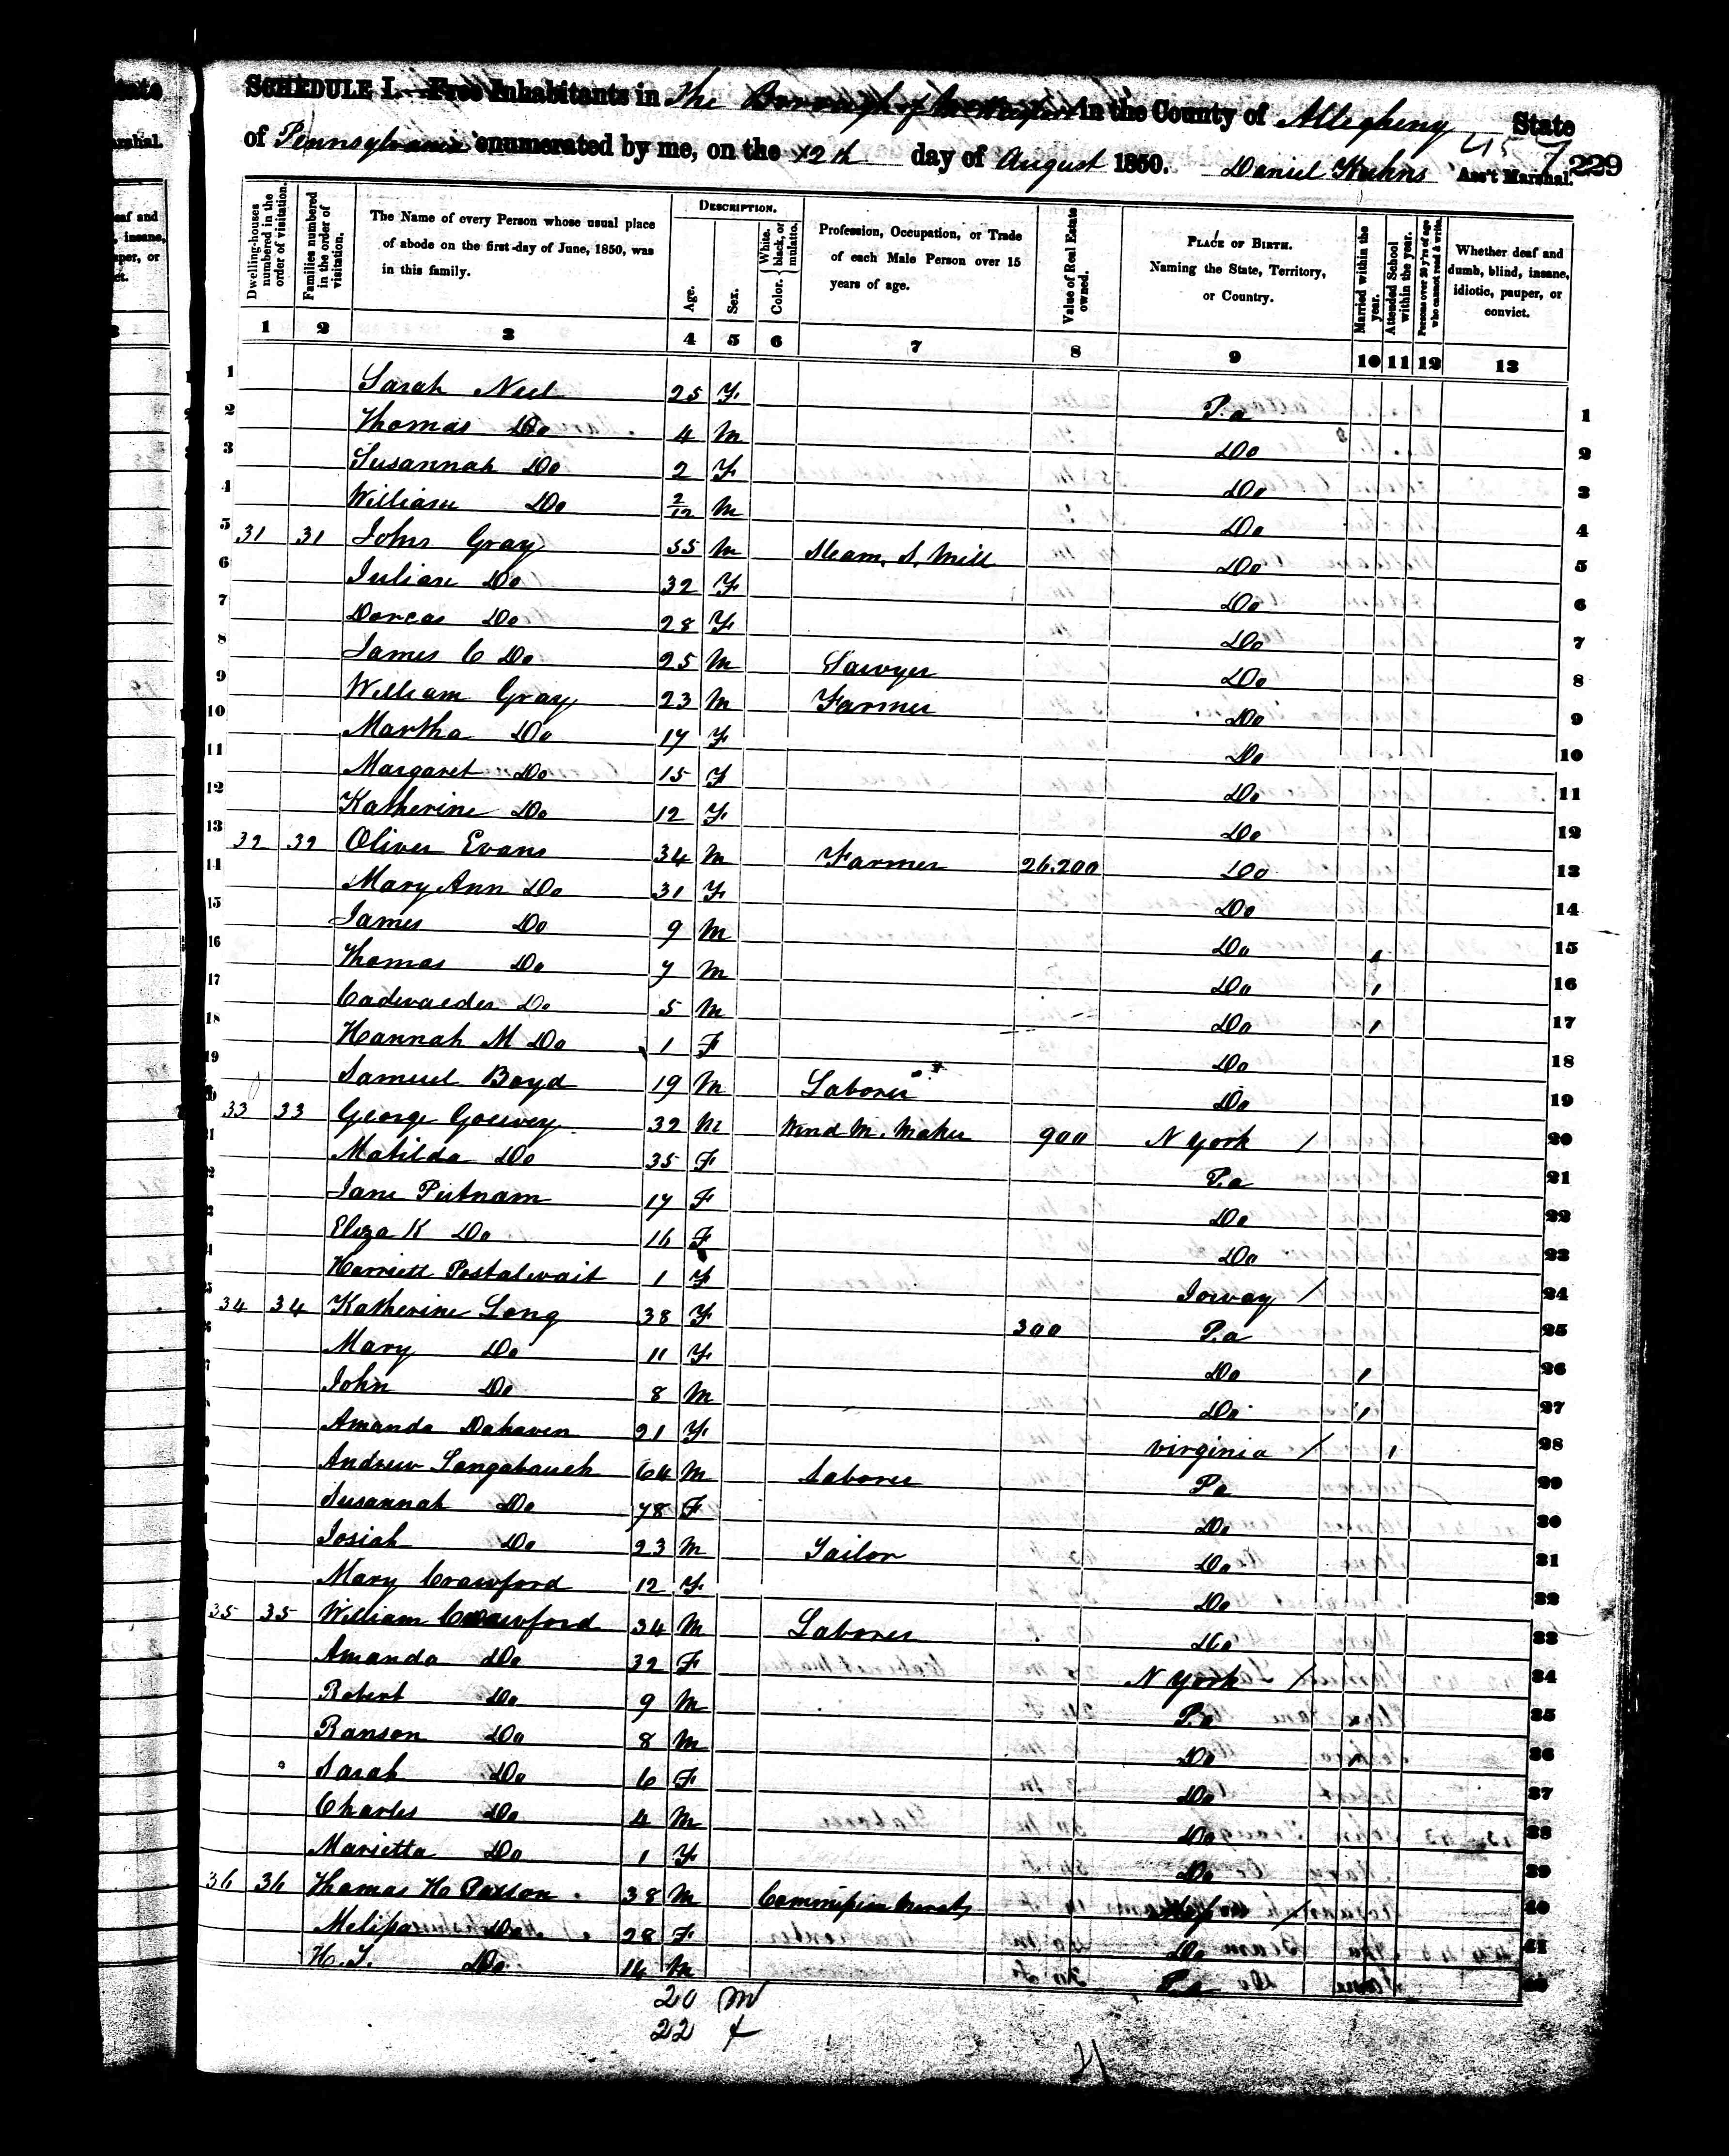 SCHEDULE I.—Free Inhabitants in The Borough of in the County of Allegheny State
of Pennsylvania enumerated by me, on the 12th day of August 1850. Daniel Kuhns Ass't Marshal. 229
Dwelling-houses numbered in the order of visitation.
Families numbered in the order of visitation.
The Name of every Person whose usual place of abode on the first day of June, 1850, was in this family.
DESCRIPTION.
Age.
Sex.
Color. White, black, or mulatto.
Profession, Occupation, or Trade of each Male Person over 15 years of age.
Value of Real Estate owned.
PLACE OF BIRTH. Naming the State, Territory, or Country.
Married within the year.
Attended School within the year.
Persons over 20 y'rs of age who cannot read & write.
Whether deaf and dumb, blind, insane, idiotic, pauper, or convict.
1 2 3 4 5 6 7 8 9 10 11 12 13
1 Sarah Neel 25 F P.a 1
2 Thomas Do 4 M Do 2
3 Susannah Do 2 F Do 3
4 William Do 2/12 M Do 4
5 31 31 John Gray 55 M Steam. S. Mill Do 5
6 Julian Do 32 F Do 6
7 Dorcas Do 28 F Do 7
8 James C Do 25 M Sawyer Do 8
9 William Gray 23 M Farmer Do 9
10 Martha Do 17 F Do 10
11 Margaret Do 15 F Do 11
12 Katherine Do 12 F Do 12
13 32 32 Oliver Evans 34 M Farmer 26.200 Do 13
14 Mary Ann Do 31 F Do 14
15 James Do 9 M Do / 15
16 Thomas Do 7 M Do / 16
17 Cadwaeder Do 5 M Do / 17
18 Hannah M Do 1 F Do 18
19 Samuel Boyd 19 M Laborer Do 19
20 33 33 George Gouvey 32 M Wind M. Maker 900 N York / 20
Matilda Do 35 F P.a 21
Jane Putnam 17 F Do 22
Eliza K Do 16 F Do 23
Harriett Postalwait 1 F Ioway / 24
34 34 Katherine Long 38 F 300 P.a 25
Mary Do 11 F Do / 26
John Do 8 M Do / 27
Amanda Dahaven 21 F Virginia / / 28
Andrew Langabauch 64 M Laborer Pa 29
Susannah Do 78 F Do 30
Josiah Do 23 M Tailor Do 31
Mary Crawford 12 F Do 32
35 35 William Crawford 34 M Laborer Do 33
Amanda Do 32 F N York / 34
Robert Do 9 M P.a 35
Ranson Do 8 M Do 36
Sarah Do 6 F Do 37
Charles Do 4 M Do 38
Marietta Do 1 F Do 39
36 36 Thomas H Paxson 38 M / 40
Melissa Do 28 F Do 41
H. T. Do 14 M P.a
20 M
22 f